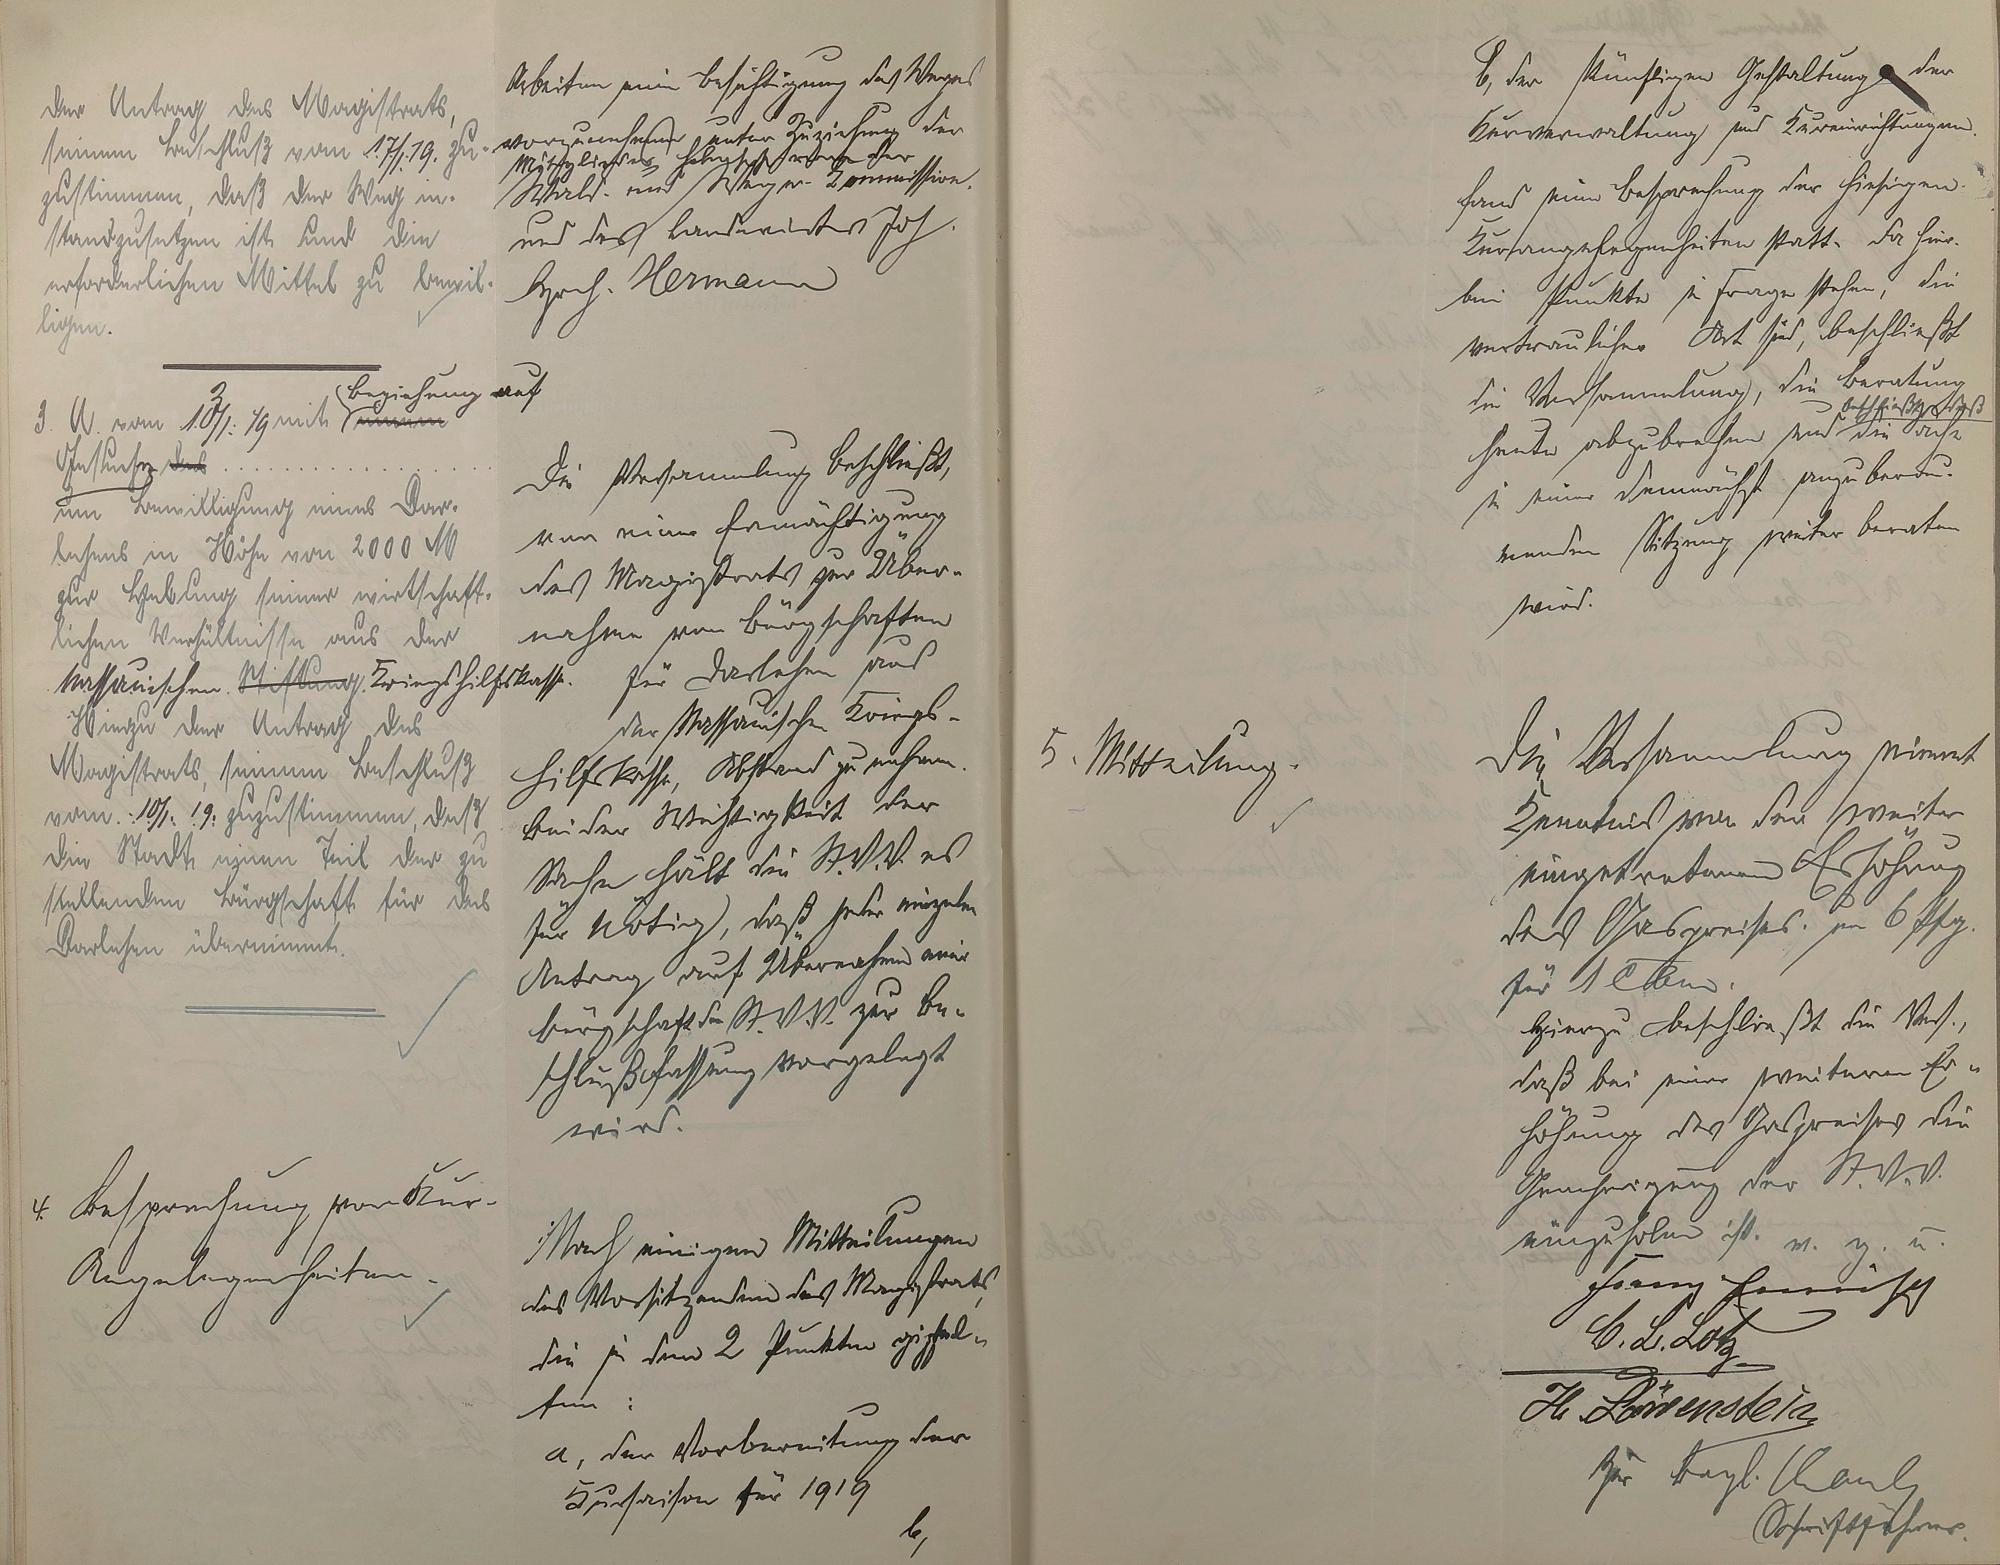 der Antrag des Magistrats,
seinem Beschluß vom 17/1.19. zu-
zustimmen, daß der Weg in-
standzusetzen ist und die
erforderlichen Mittel zu bewil-
ligen.
Arbeiten eine Besichtigung des Weges
vorzunehmen unter Zuziehung der
Mitglieder der
Wald- und Wege-Commission.
und des Landwirtes Joh.
Hch. Hermann
3. U. vom 10/1. 19 mit Beziehung auf
Gesuche des
um Bewilligung eines Dar-
lehens in Höhe von 2000 M
zur Hebung seiner wirtschaft-
lichen Verhältnisse aus der
Nassauischen Stiftung Kriegshilfskasse.
Hierzu der Antrag des
Magistrats, seinem Beschluß
vom 10/1. 19. zuzustimmen, daß
die Stadt einen Teil der zu
stellenden Bürgschaft für das
Darlehen übernimmt.
Die Versammlung beschließt,
von einer Ermächtigung
des Magistrats zur Über-
nahme von Bürgschaften
für Darlehen aus
der Nassauischen Kriegs-
hilfskasse, Abstand zu nehmen.
Bei der Wichtigkeit der
Sache hält die St.V.V. es
für nötig, daß jeder einzelne
Antrag auf Übernahme einer
Bürgschaft der St.V.V. zur Be-
schlußfassung vorgelegt
wird.
4. Besprechung von Kur-
Angelegenheiten.
Nach einigen Mitteilungen
des Vorsitzenden des Magistrats,
die in den 2 Punkten gipfel-
ten:
a, der Vorbereitung der
Kursaison für 1919
b,
b, der künftigen Gestaltung der
Kurverwaltung und Kureinrichtungen.
fand eine Besprechung der hiesigen
Kurangelegenheiten statt. Da hier-
bei Punkte in Frage stehen, die
vertraulicher Art sind, beschließt
die Versammlung, die Beratung
heute abzubrechen und die
in einer demnächst anzuberau-
menden Sitzung weiter beraten
wird.
5. Mitteilung.
Die Versammlung nimmt
Kenntnis von der weiter
eingetretenen Erhöhung
des Gaspreises um 6 Pfg.
für 1 cbm.
Hierzu beschließt die Vers.,
daß bei einer weiteren Er-
höhung des Gaspreises die
Genehmigung der St.V.V.
einzuholen ist. v. g. u.
C. L. Lotz
H. Löwenstein
Schriftführer.